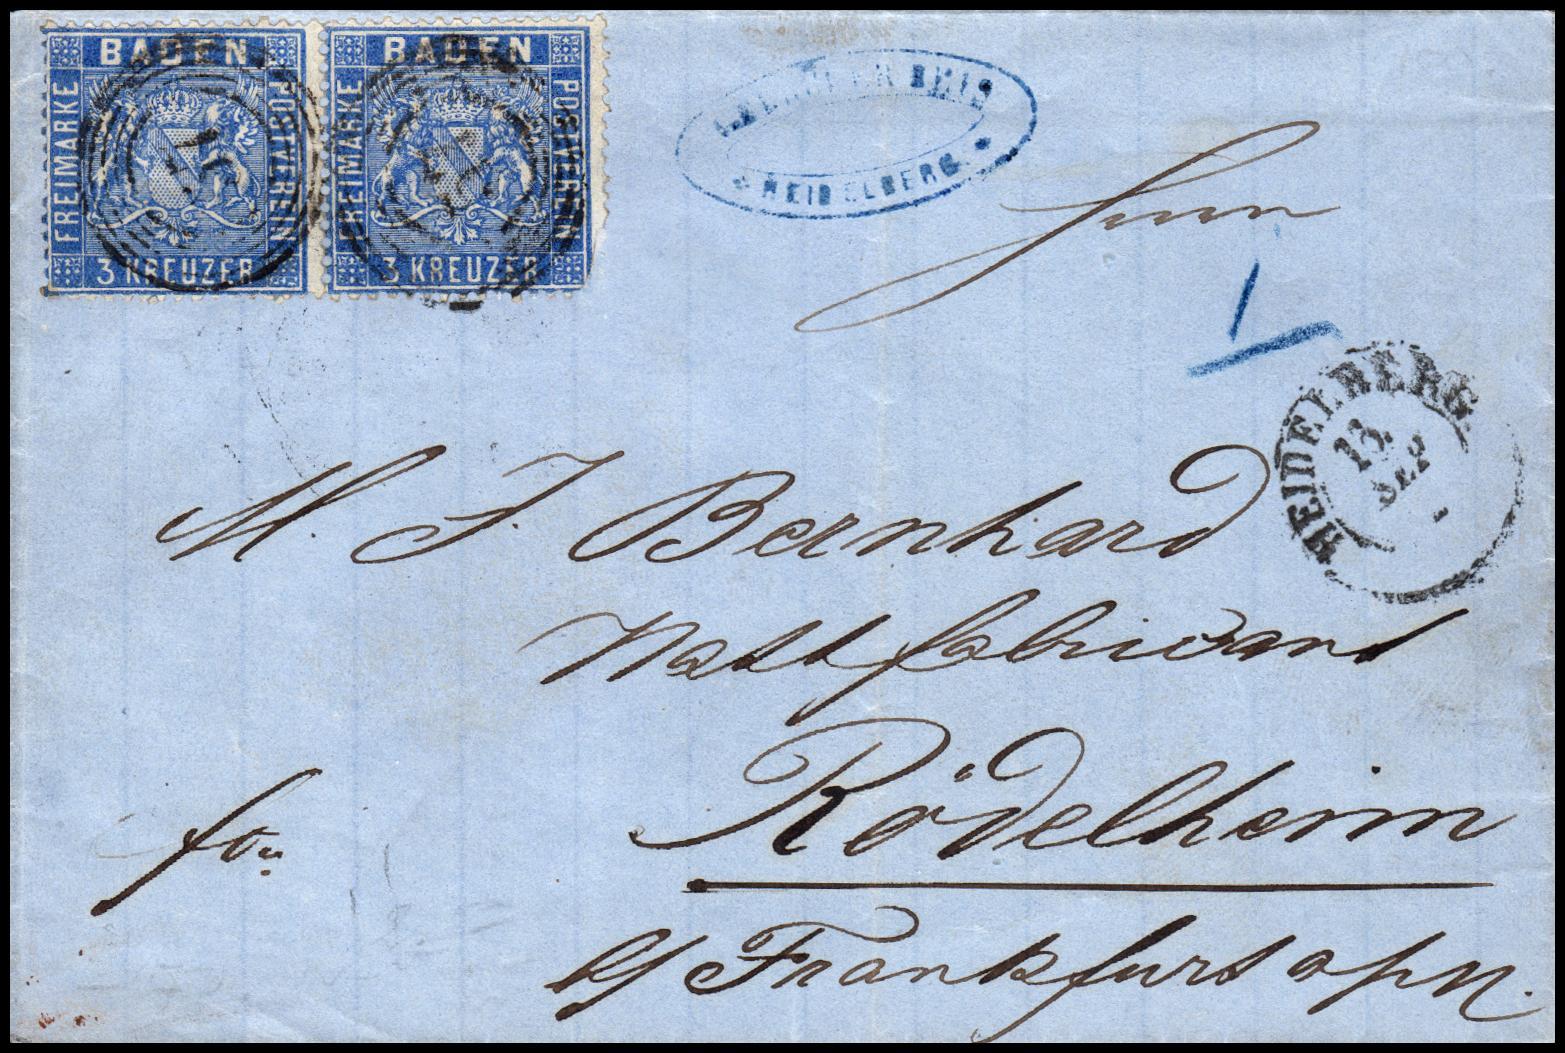 BADEN
FREIMARKE
POSTVEREIN
3 KREUZER
BADEN
FREIMARKE
POSTVEREIN
3 KREUZER
REIS
HEIDELBERG
Herrn
1
HEIDELBERG
13.
SEP
M. J. Bernhard
Rödelheim
fco
b/ Frankfurt a/M.